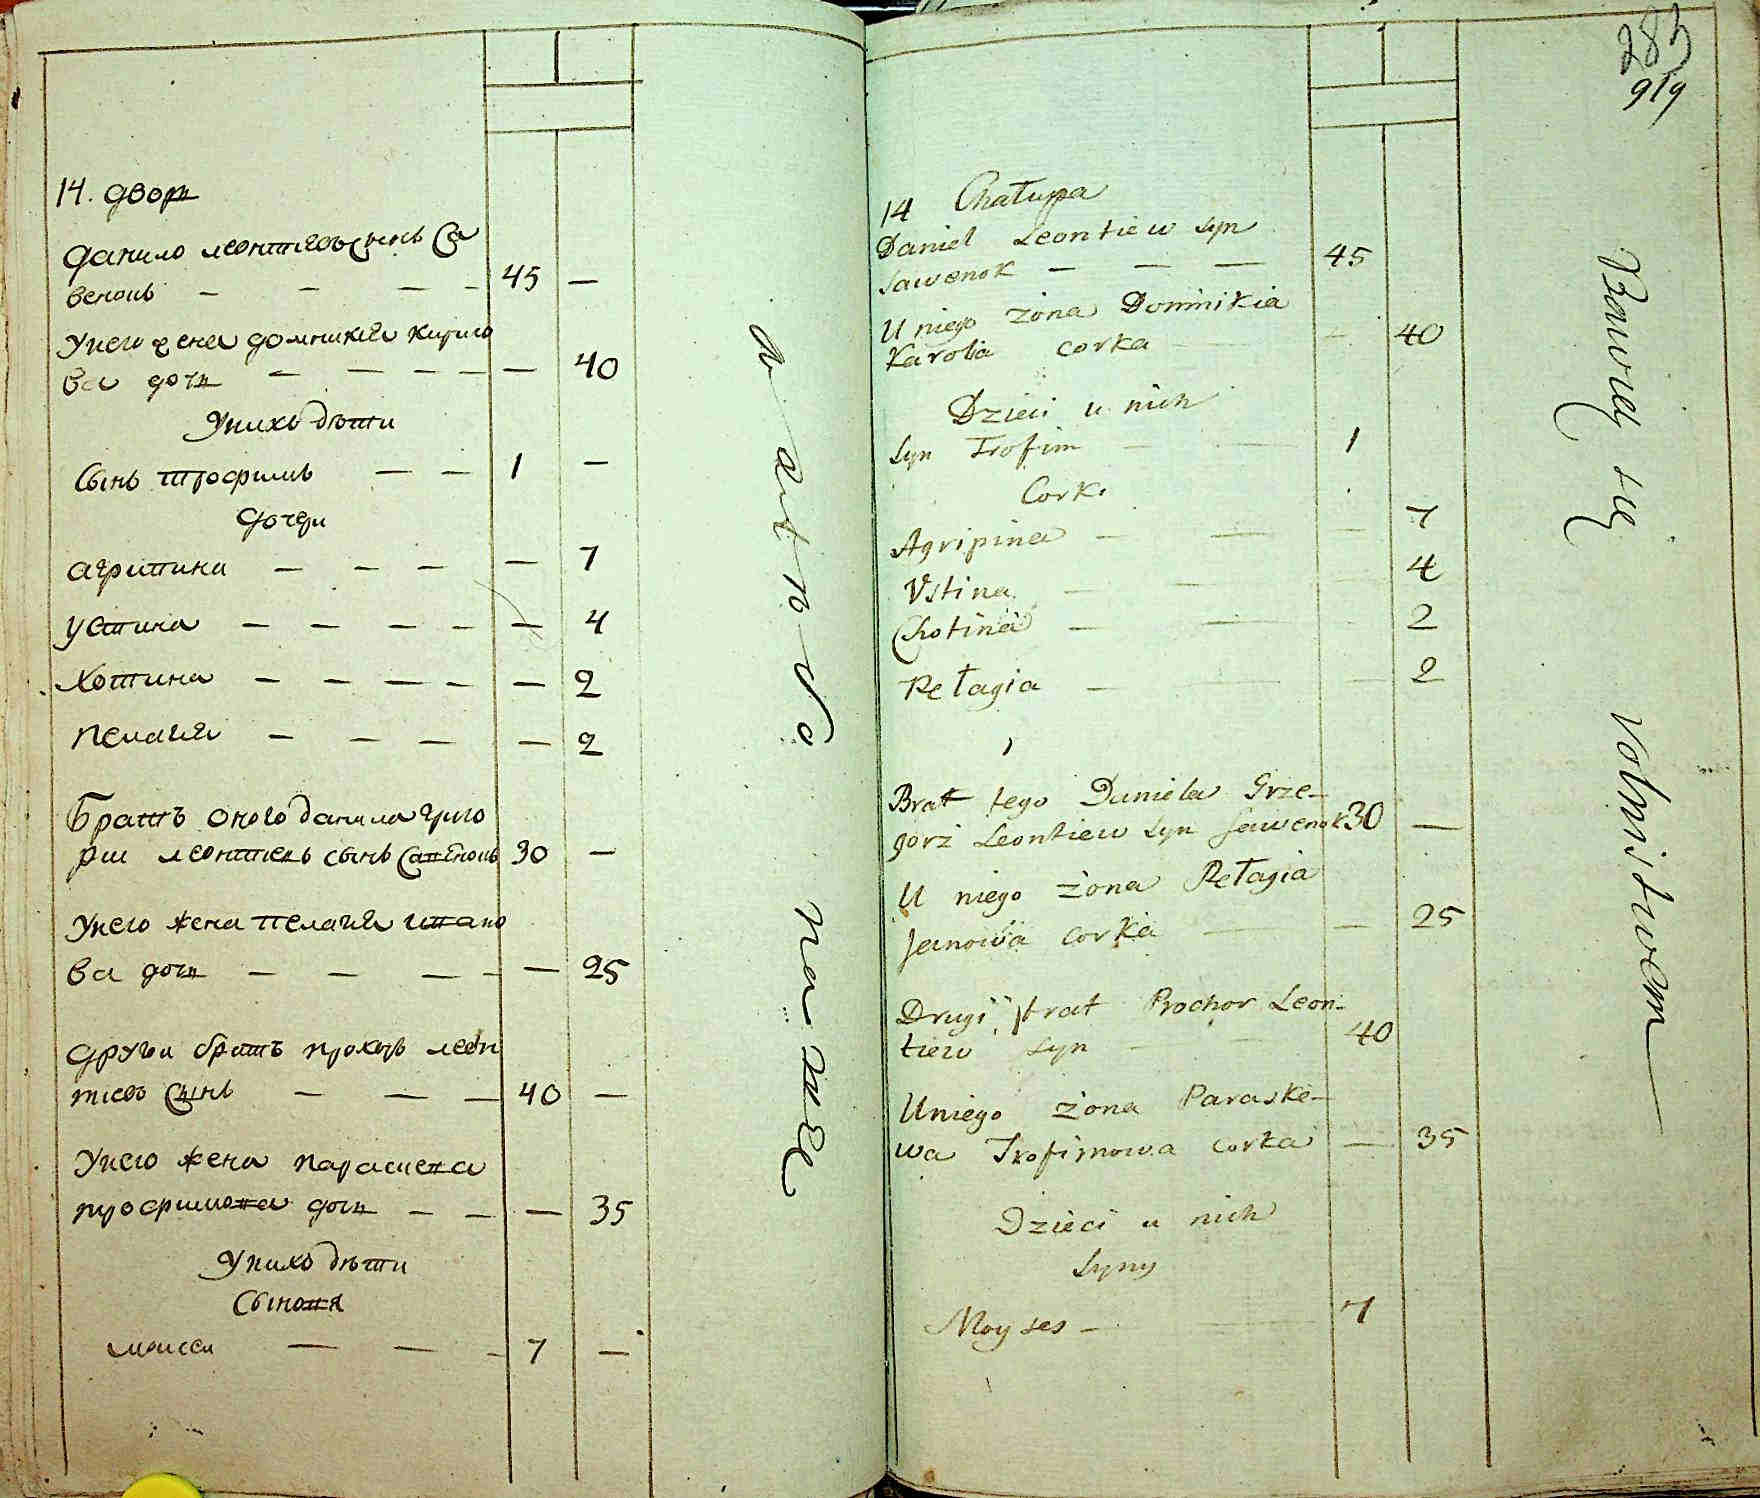 14. дворъ
данило леонтиевъ сынъ Са
венокъ — — — — 45 —
Унего жена домникия кирило
ва дочь — — — — — 40
Унихъ дѣти
Сынъ трофимъ — — 1 —
дочери
агрипина — — — — 7
устина — — — — — 4
хотина — — — — — 2
пелагия — — — — 2
Братъ оного данила григо
рии леонтиевъ сынъ Савенокъ 30 —
Унего жена пелагия ивано
ва дочь — — — — — 25
други братъ прохоръ леон
тиевъ Сынъ — — — 40 —
Унего жена параскева
трофимова дочь — — — 35
Унихъ дѣти
Сыновя
моисеи — — — 7 —
пашне
283
919
14 Chałuppa
Daniel Leontiew syn
Sawenok — — — 45
U niego żona Dominikia
Karola corka — — 40
Dzieci u nich
Syn Trofim — — 1
Corki
Agripina — — — 7
Ustina — — — 4
Chotina — — — 2
Pełagia — — — 2
Brat tego Daniela Grze-
gorz Leontiew Syn Sawenok 30 —
U niego żona Pełagia
Janowa corka — — 25
Drugi brat Prochor Leon-
tiew syn — — 40
U niego żona Paraske-
wa Trofimowa corka — 35
Dzieci u nich
Syny
Moyses — — 7
Bawią się Rolnistwem